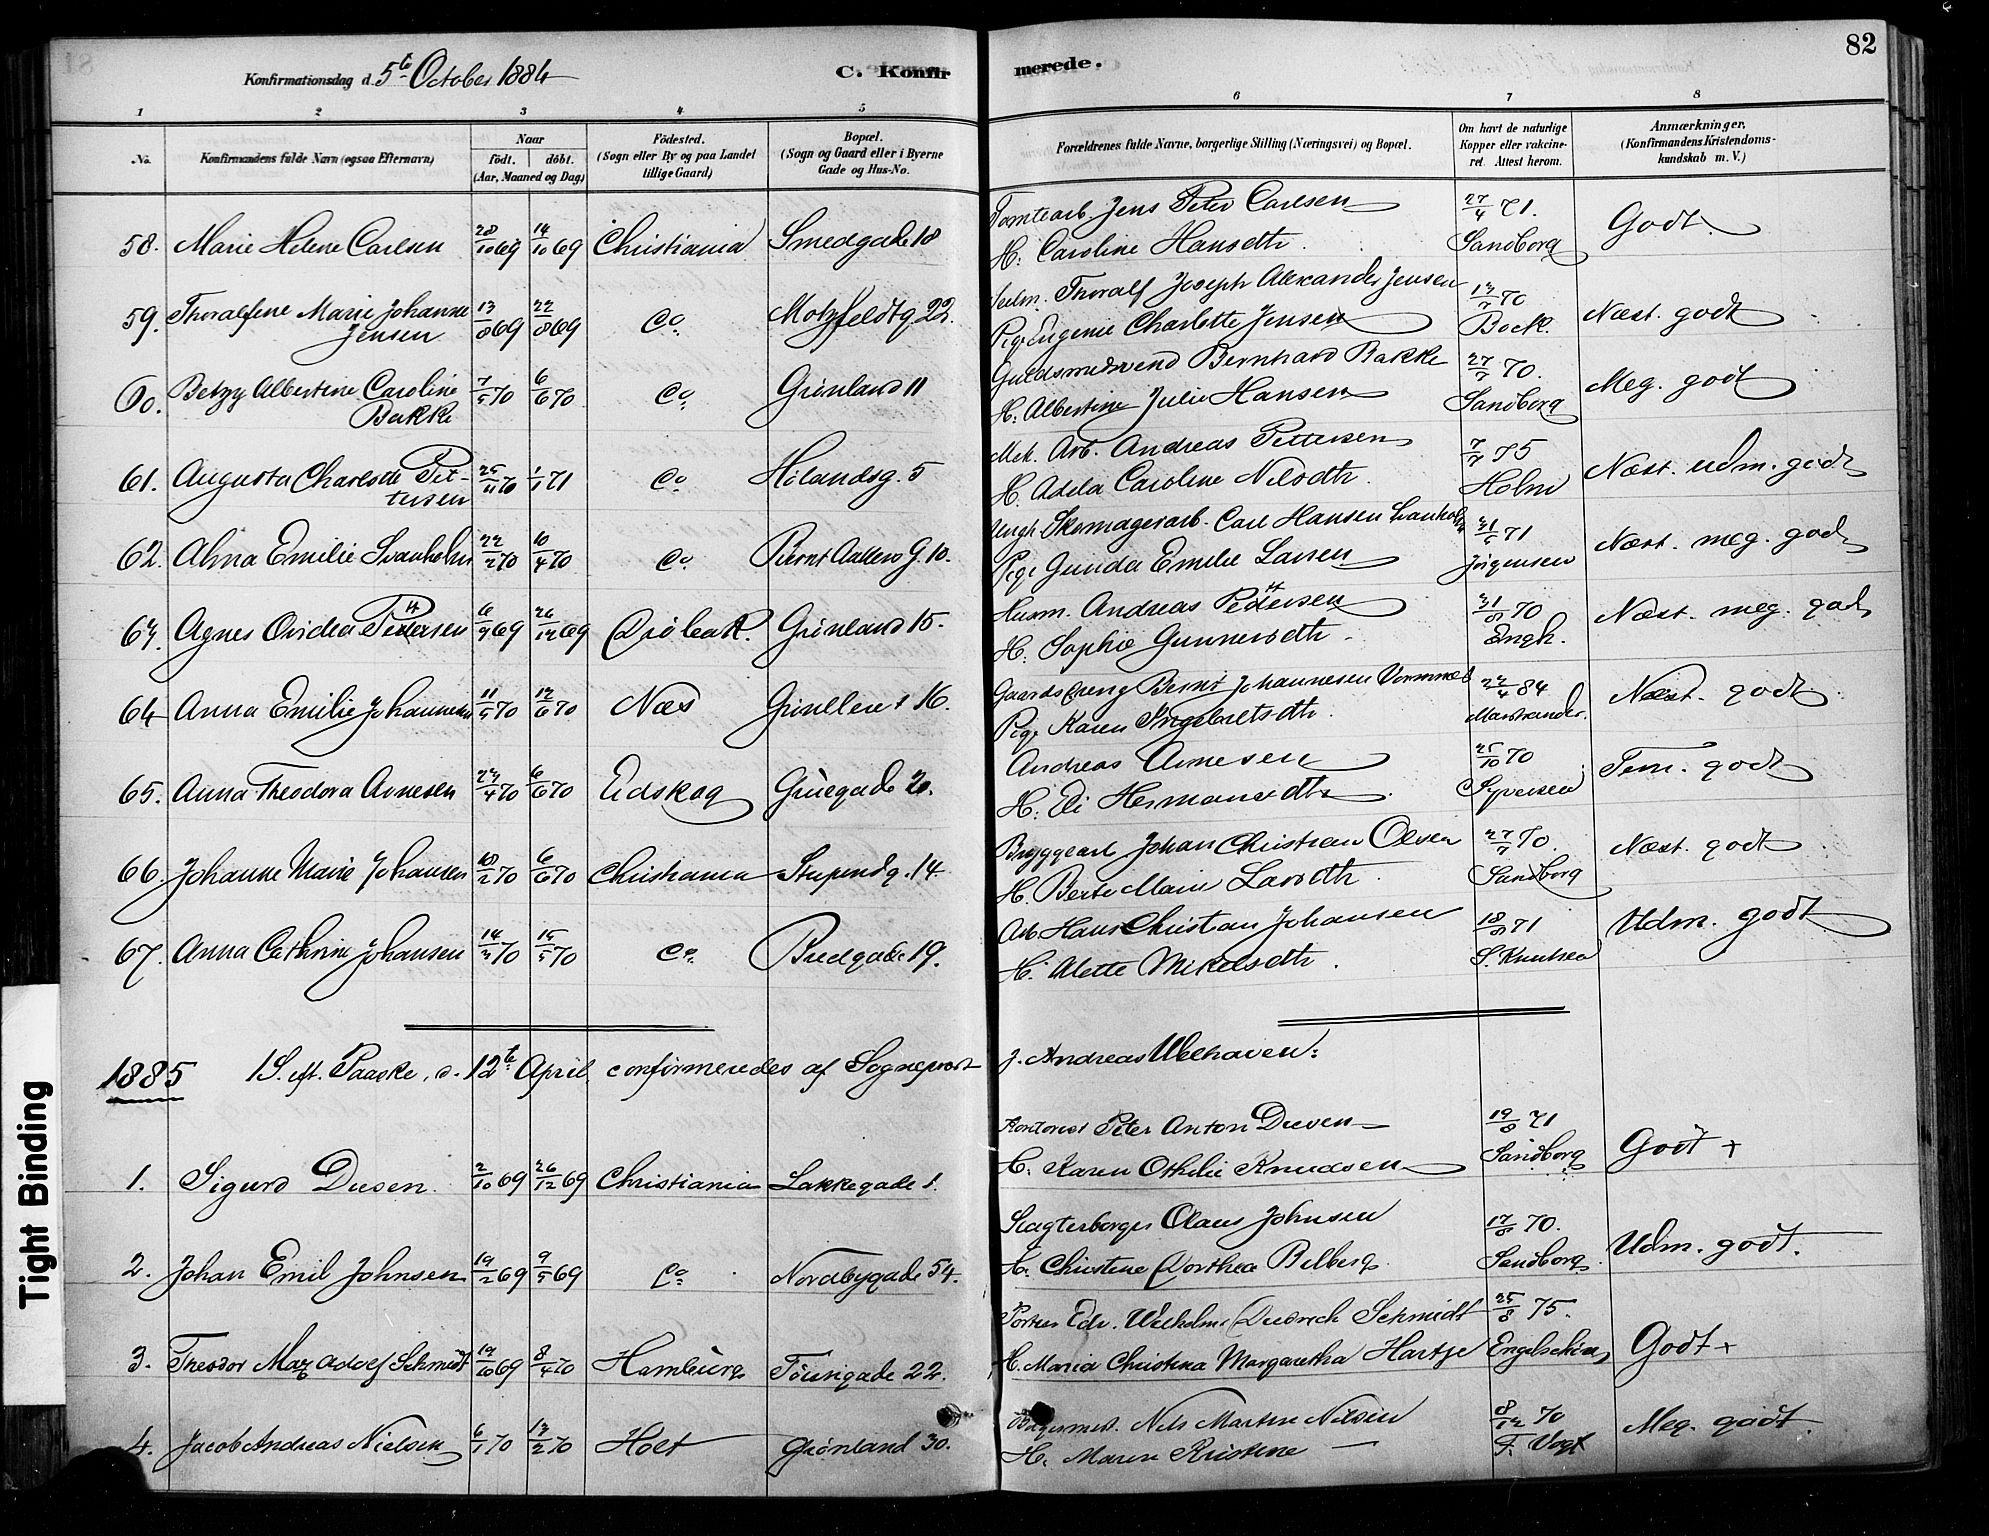 82
Konfirmationsdag d. 5te October 1884
C. Konfirmerede.
1 2 3 4 5 6 7 8
No. Konfirmandens fulde Navn (ogsaa Efternavn) Naar født. døbt. (Aar, Maaned og Dag) Födested. (Sogn eller By og paa Landet tillige Gaard) Bopæl. (Sogn og Gaard eller i Byerne Gade og Hus-No. Forældrenes fulde Navne, borgerlige Stilling (Næringsvei) og Bopæl. Om havt de naturlige Kopper eller vakcineret. Attest herom. Anmærkninger, (Konfirmandens Kristendomskundskab m. V.)
58. Marie Helene Carlsen 28/10 69 14/10 69 Christiania Smedgade 18 Tomtearb. Jens Peter Carlsen 27/4 71. Godt
H. Caroline Hansdtr. Sandborg
59. Thoralfine Marie Johanne Jensen 13/8 69 22/8 69 Co Motzfeldtg 22. Thoralf Joseph Alexander Jensen 13/7 70 Næst. godt
Pige Eugenie Charlotte Jensen Bock.
60. Betzy Albertine Caroline Bakke 7/5 70 6/6 70 Co Grønland 11 Guldsmedsvend Bernhard Bakke 27/7 70. Meg. godt
H. Albertine Julie Hansen Sandborg
61. Augusta Charlotte Pettersen 25/11 70 1/1 71 Co Hølandsg. 5 Mek. Arb. Andreas Pettersen 7/7 75 Næst. udm. godt
H. Adela Caroline Nilsdtr. Holm
62. Alma Emilie Svanholm 22/2 70 10/4 70 Co Bernt Ankers G. 10. Ungk. Skomagerarb. Carl Hansen Svanholm 31/5 71 Næst. meg. godt
Pige Gunda Emilie Larsen Jørgensen
63. Agnes Ovidea Pettersen 6/9 69 26/12 69 Drøbak. Grønland 15. Husm. Andreas Pettersen 31/8 70 Næst. meg. godt
H. Sophie Gunnersdtr. Engh.
64 Anna Emilie Johannesen 11/5 70 12/6 70 Næs 16. Gaardsdreng Bernt Johannesen 22/4 84 Næst. godt
Pige Karen Ingebretsdtr. Marstrander.
65. Anna Theodora Arnesen 23/4 70 6/6 70 Eidskog Gruegade 20. Andreas Arnesen 25/10 70 Tem. godt
H. Eli Hermansdtr. Syversen
66. Johanne Marie Johansen 10/2 70 6/6 70 Christiania Stupendg. 14 Bryggearb Johan Christian Olsen 27/7 70. Næst. godt
H. Berte Marie Larsdtr. Sandborg
67. Anna Cathrine Johansen 14/3 70 15/5 70 Co. Bredgade 19. Arb. Hans Christian Johansen 18/9 71 Udm. godt
H. Alette Mikelsdtr. S. Knutsen
1885 1 S. eft. Paaske, d. 12te April confirmeredes af Sogneprest J. Andreas Welhaven:
1. Sigurd Duesen. 2/10 69 26/12 69 Christiania Lakkegade 1. Kontorist Peter Anton Duesen 19/8 71 Godt +
H. Karen Othilie Knudsen Sandborg
2. Johan Emil Johnsen 19/2 69 9/5 69 Co Nordbygade 54. Slagterborger Olaus Johnsen 17/8 70. Udm. godt.
H. Christine Dorthea Belberg. Sandborg
3. Theodor Max Adolf Schmidt 19/10 69 8/4 70 Hamburg Tøiengade 22. Portier Edv. Wilhelm Diedrich Schmidt 25/8 75. Godt +
H. Maria Christina Margaretha Hartje Engelschiøn
4. Jacob Andreas Nielsen 6/1 70 13/2 70 Holt Grønland 30. Nils Martin Nilsen 8/12 70 Meg. godt.
H. Maren Kristine — F. Vogt
Tight Binding